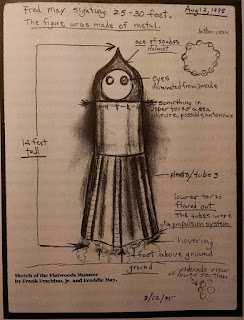 Fred May sighting 25-30 feet.
Aug 12, 1995
The figure was made of metal.
bottom view
ace of spades
helmet
eyes
illuminated from inside
something in
upper torso area
possibly antennae
12 feet
tall
pleats/tubes
lower torso
flared out
The tubes were
a propulsion system
hovering
1 foot above ground
ground
underside view
of lower section
Sketch of the Flatwoods Monster
by Frank Feschino, Jr. and Freddie May.
8/12/95